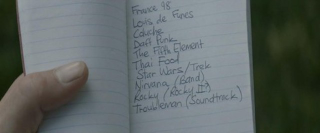 France 98
Louis de Funes
Coluche
Daft Punk
The Fifth Element
Thai Food
Star Wars / Trek
Nirvana (Band)
Rocky (Rocky III?)
Troubleman (Soundtrack)